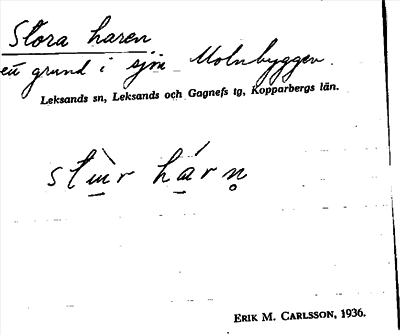 Stora haren
ett grund i sjön Molnbyggen.
Leksands sn, Leksands och Gagnefs tg, Kopparbergs län.
stɯ̀r hárn̥
ERIK M. CARLSSON, 1936.